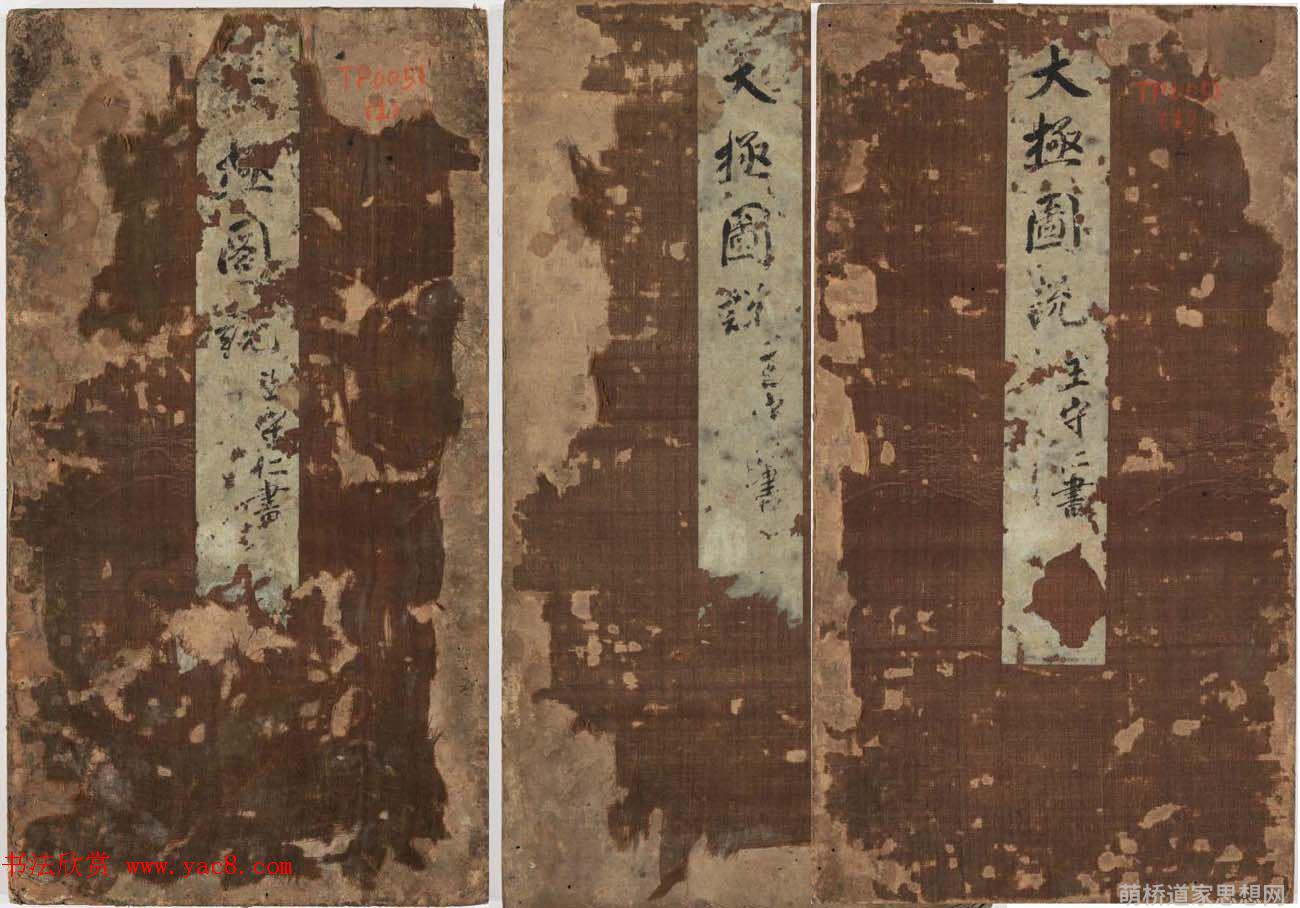 TP0051
(1)
極圖說
王守仁書
大極圖說
書
TP0051
大極圖說
王守仁書
书法欣赏 www.yac8.com
萌桥道家思想网